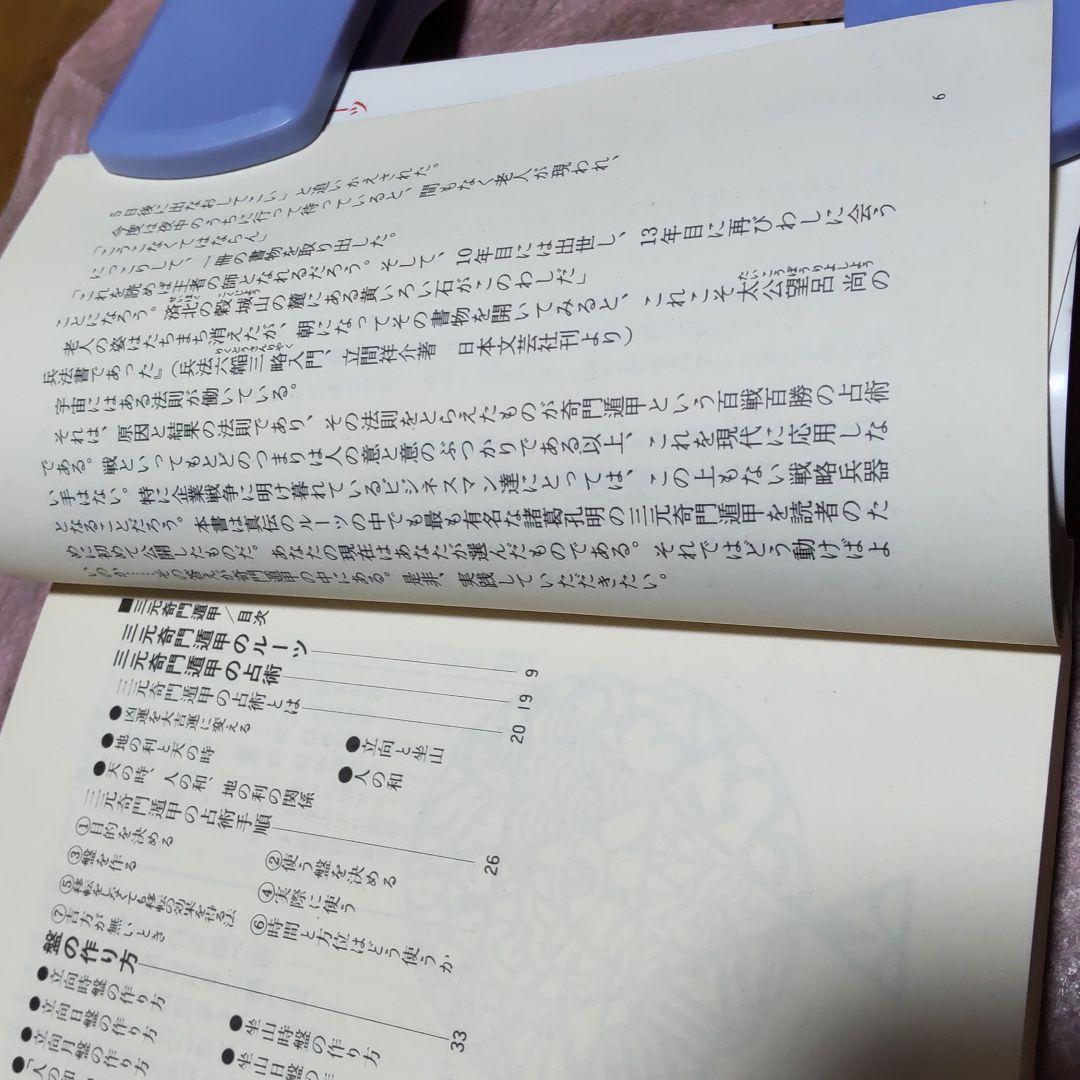 6
5日後に出なおしてこい」と追いかえされた。
今度は夜中のうちに行って待っていると、間もなく老人が現われ、
「こうこなくてはならん」
にっこりして、一冊の書物を取り出した。
「これを読めば王者の師となれるだろう。そして、10年目には出世し、13年目に再びわしに会う
ことになろう。済北の穀城山の麓にある黄いろい石がこのわしだ」
老人の姿はたちまち消えたが、朝になってその書物を開いてみると、これこそ太公望呂尚の
兵法書であった』（兵法六韜三略入門、立間祥介著　日本文芸社刊より）
宇宙にはある法則が働いている。
それは、原因と結果の法則であり、その法則をとらえたものが奇門遁甲という百戦百勝の占術
である。戦といってもとどのつまりは人の意と意のぶつかりである以上、これを現代に応用しな
い手はない。特に企業戦争に明け暮れているビジネスマン達にとっては、この上もない戦略兵器
となることだろう。本書は真伝のルーツの中でも最も有名な諸葛孔明の三元奇門遁甲を読者のた
めに初めて公開したものだ。あなたの現在はあなたが選んだものである。それではどう動けばよ
いのか……その答えが奇門遁甲の中にある。是非、実践していただきたい。
■三元奇門遁甲／目次
三元奇門遁甲のルーツ 9
三元奇門遁甲の占術 19
三元奇門遁甲の占術とは 20
●凶運を大吉運に変える　●立向と坐山
●地の利と天の時　●人の和
●天の時、人の和、地の利の関係
三元奇門遁甲の占術手順 26
①目的を決める　②使う盤を決める
③盤を作る　④実際に使う
⑤移転をしなくても移転の効果を得る法　⑥時間と方位はどう使うか
⑦吉方が無いとき
盤の作り方 33
●立向時盤の作り方　●坐山時盤の作り方
●立向日盤の作り方　●坐山日盤の
●立向月盤の作り方
●「人の和